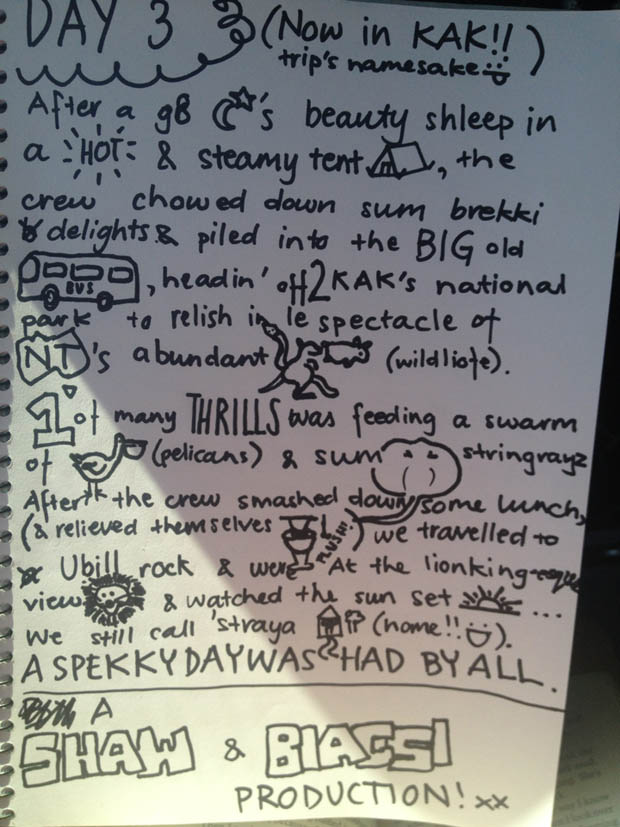 DAY 3 (Now in KAK!!)
trip's namesake
After a g8 's beauty shleep in
a HOT & steamy tent, the
crew chowed down sum brekki
delights & piled into the BIG old
BUS, headin' off 2 KAK's national
park to relish in le spectacle of
NT's abundant (wildliofe).
1 of many THRILLS was feeding a swarm
of (pelicans) & sum stringrayz
After the crew smashed down some lunch,
(& relieved themselves FLUSH!) we travelled to
Ubill rock & were At the lionking
view & watched the sun set ...
We still call 'straya (home!!).
A SPEKKY DAY WAS HAD BY ALL.
A
SHAW & BIASSI
PRODUCTION! xx